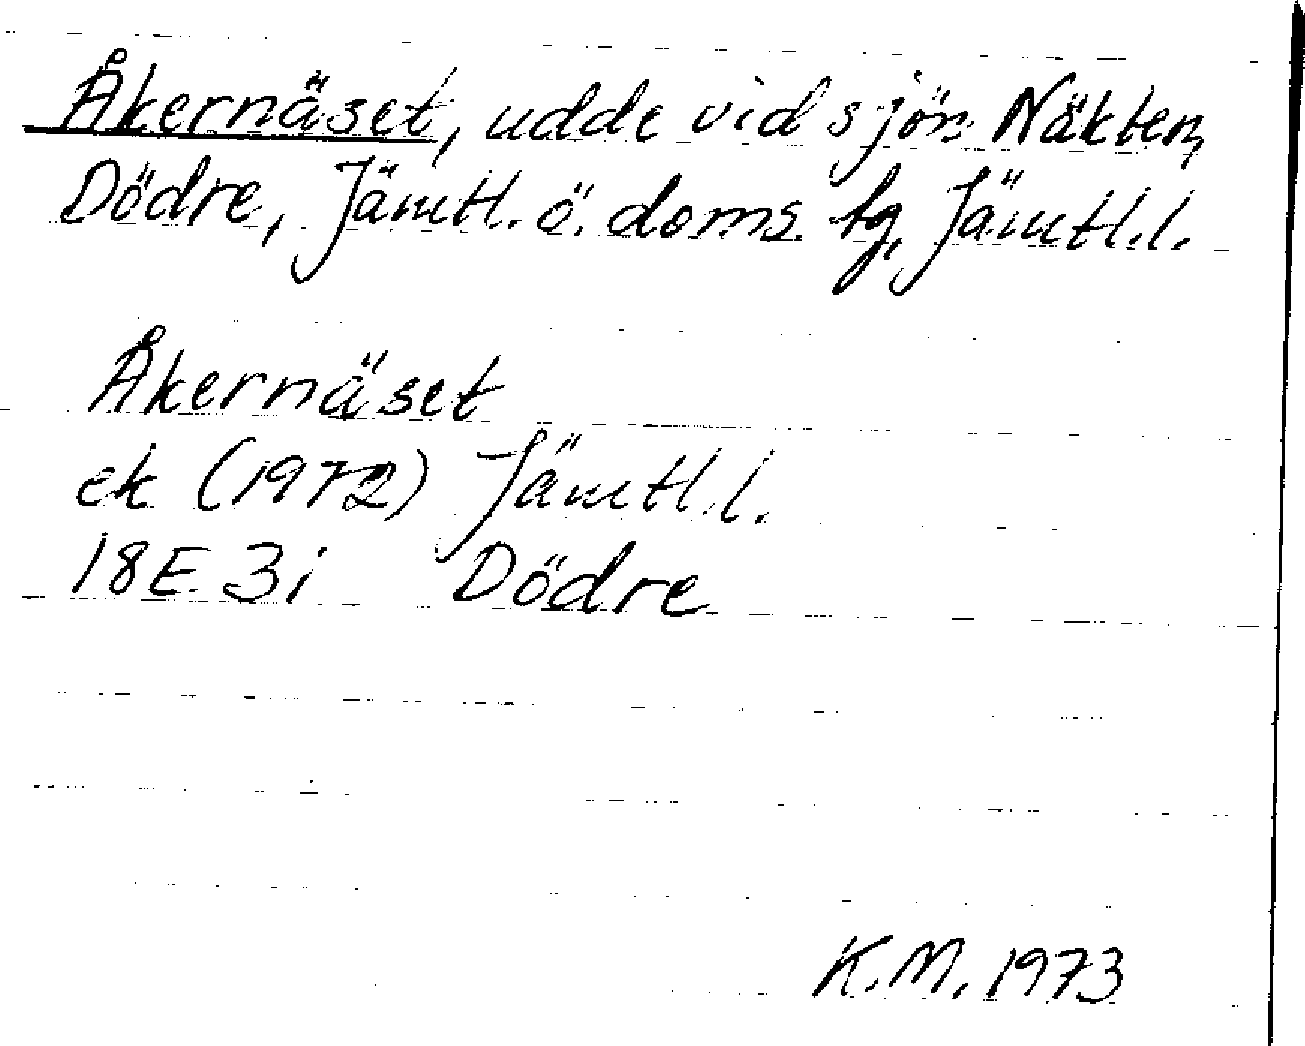 Åkernäset, udde vid sjön Näkten,
Dödre, Jämtl. ö. doms. tg, Jämtl.l.
Åkernäset
ek (1972) Jämtl.l.
18E 3i Dödre
K.M. 1973